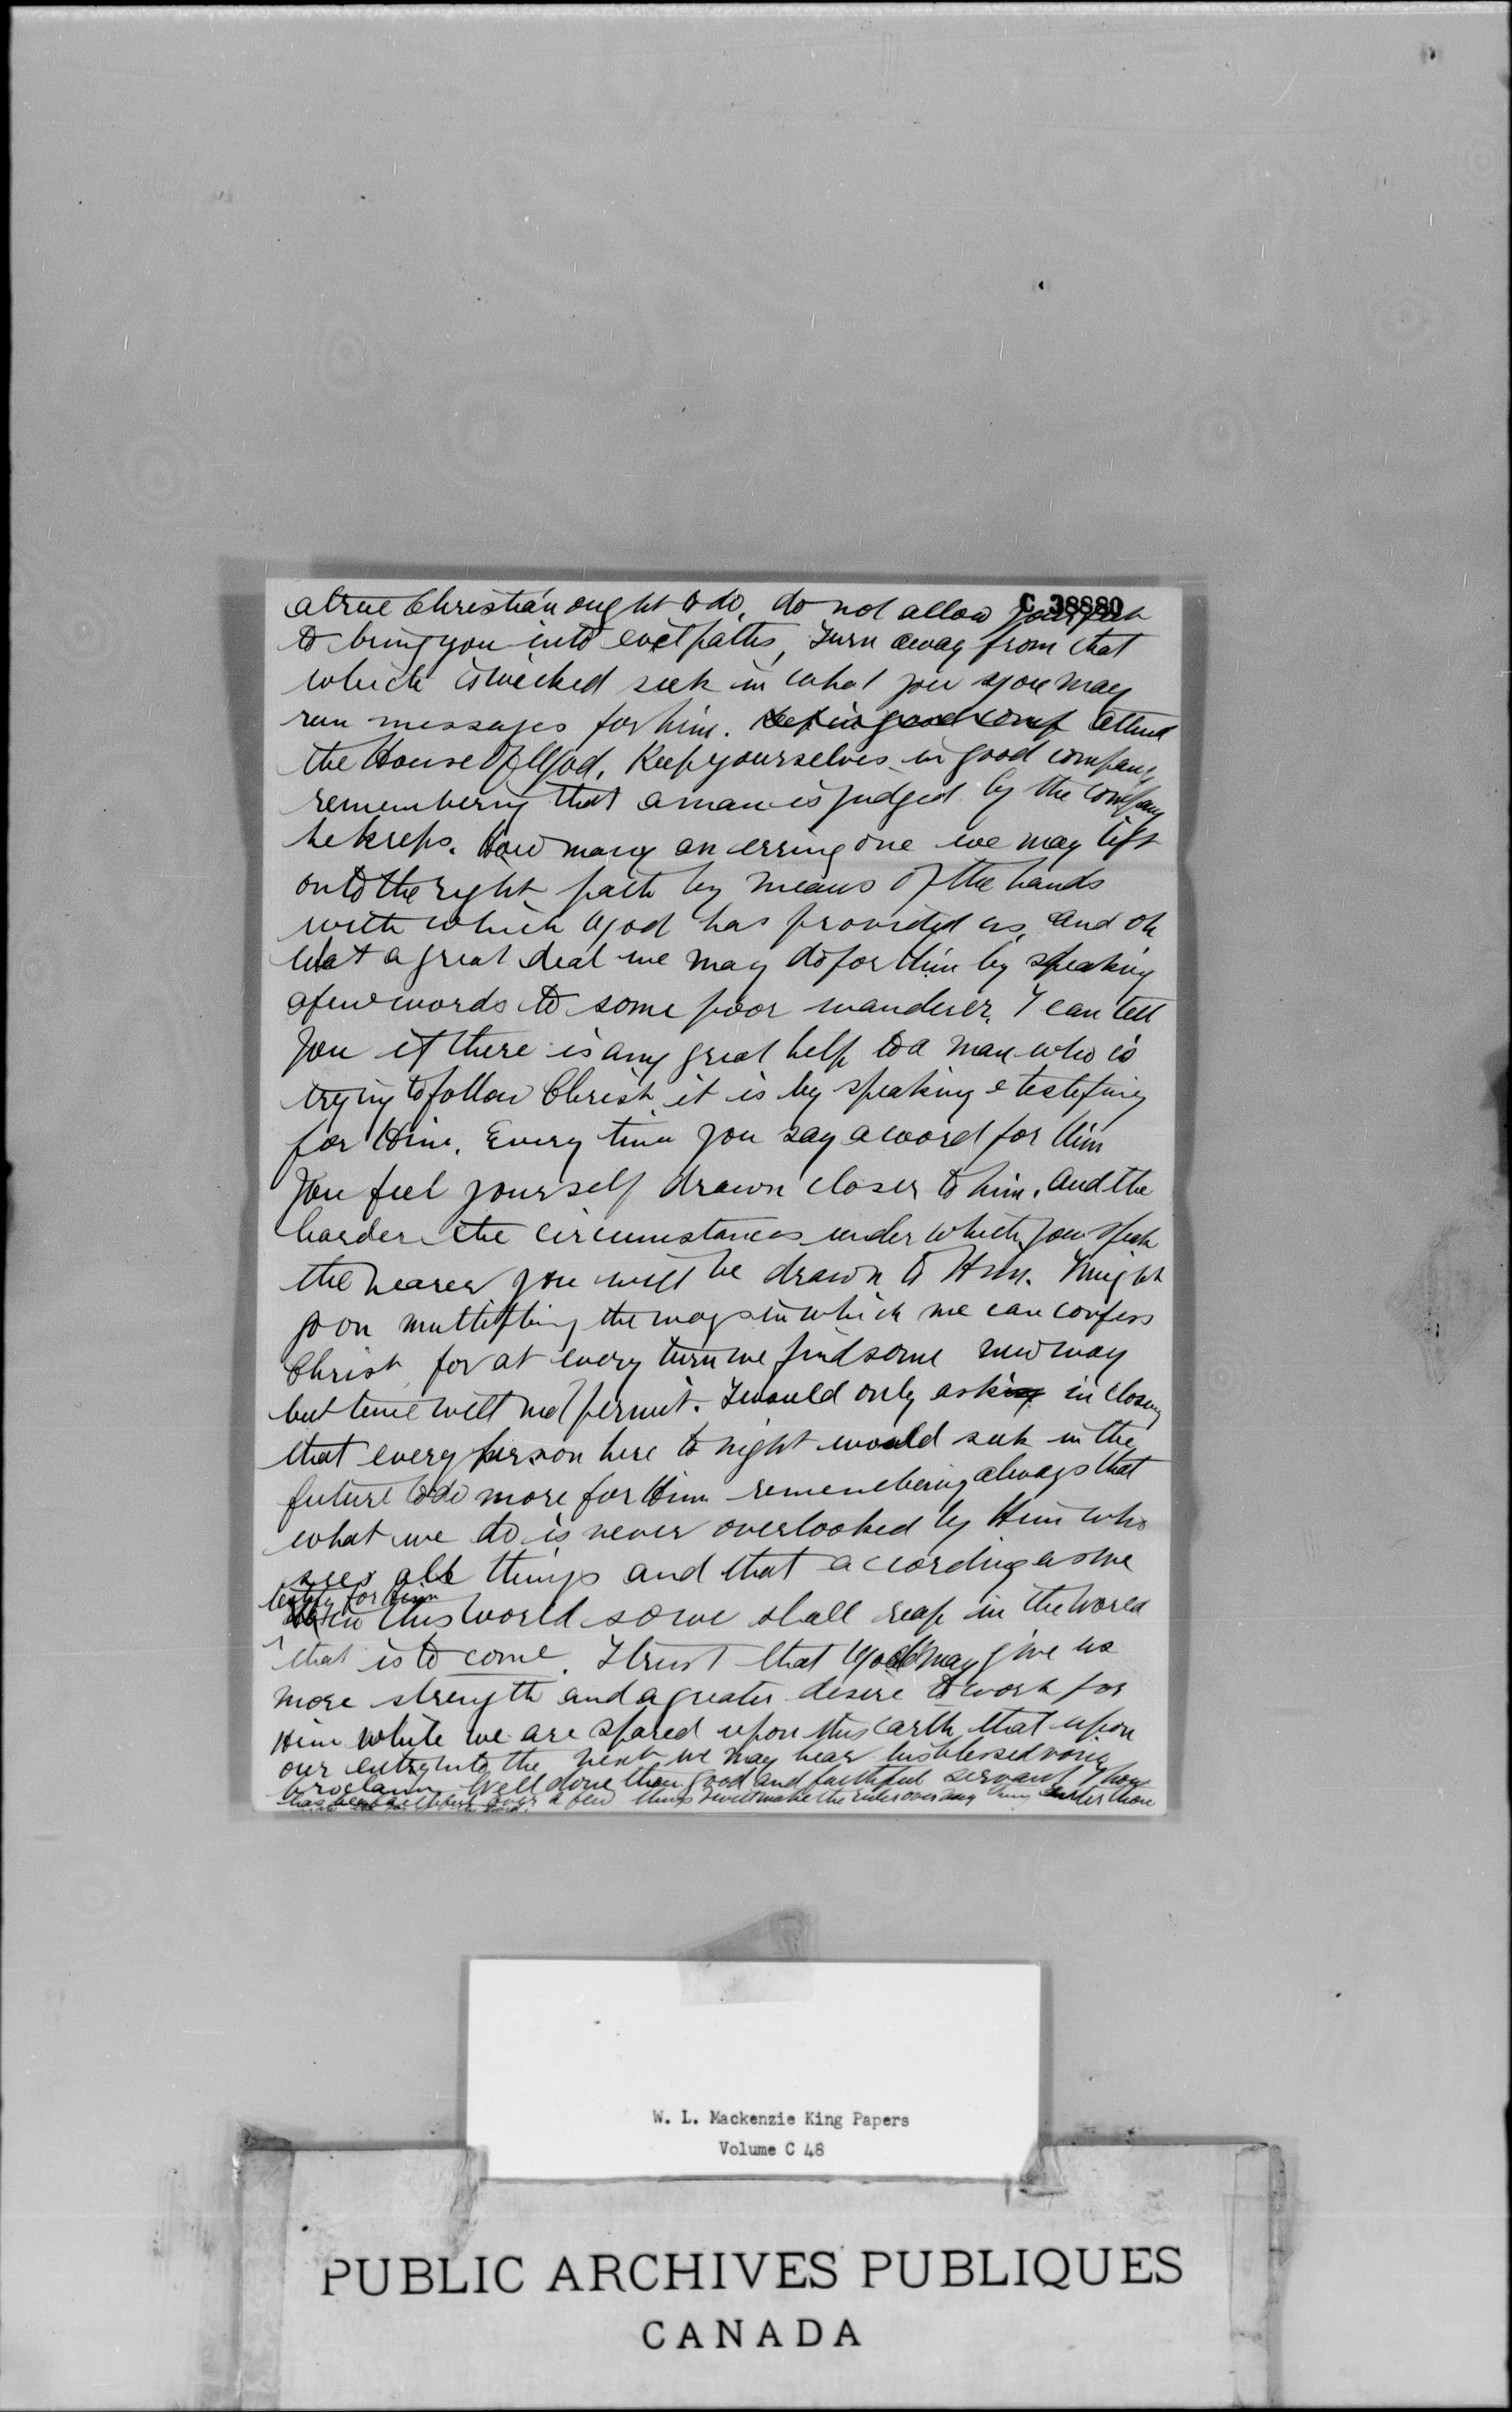 C 38880
a true Christian ought to do, do not allow your feet
to bring you into evil paths, Turn away from that
which is wicked seek in what you may
run messages for him. Keep in good comp attend
the House of God. Keep yourselves in good company
remembering that a man is judged by the company
he keeps. How many an erring one we may lift
onto the right path by means of the hands
with which God has provided us, and oh
what a great deal we may do for Him by speaking
a few words to some poor wanderer. I can tell
you if there is any great help to a man who is
trying to follow Christ it is by speaking & testifing
for Him. Every time you say a word for Him
you feel yourself drawn closer to him. And the
harder the circumstances under which you speak
the nearer you will be drawn to Him. I might
go on multipling the ways in which we can confess
Christ for at every turn we find some new way
but time will not permit. I would only asking in closing
that every person here to night would seek in the
future to do more for Him remembering always that
what we do is never overlooked by Him who
sees all things and that according as we
testify for Him
in this world so we shall reap in the world
that is to come. I trust that God may give us
more strength and a greater desire to work for
Him while we are spared upon this earth that upon
our entry into the next we may hear his blessed voice
proclaim Well done thou good and faithful servant Thou
has been faithful over a few things I will make the ruler over many things enter thou
W. L. Mackenzie King Papers
Volume C 48
PUBLIC ARCHIVES PUBLIQUES
CANADA